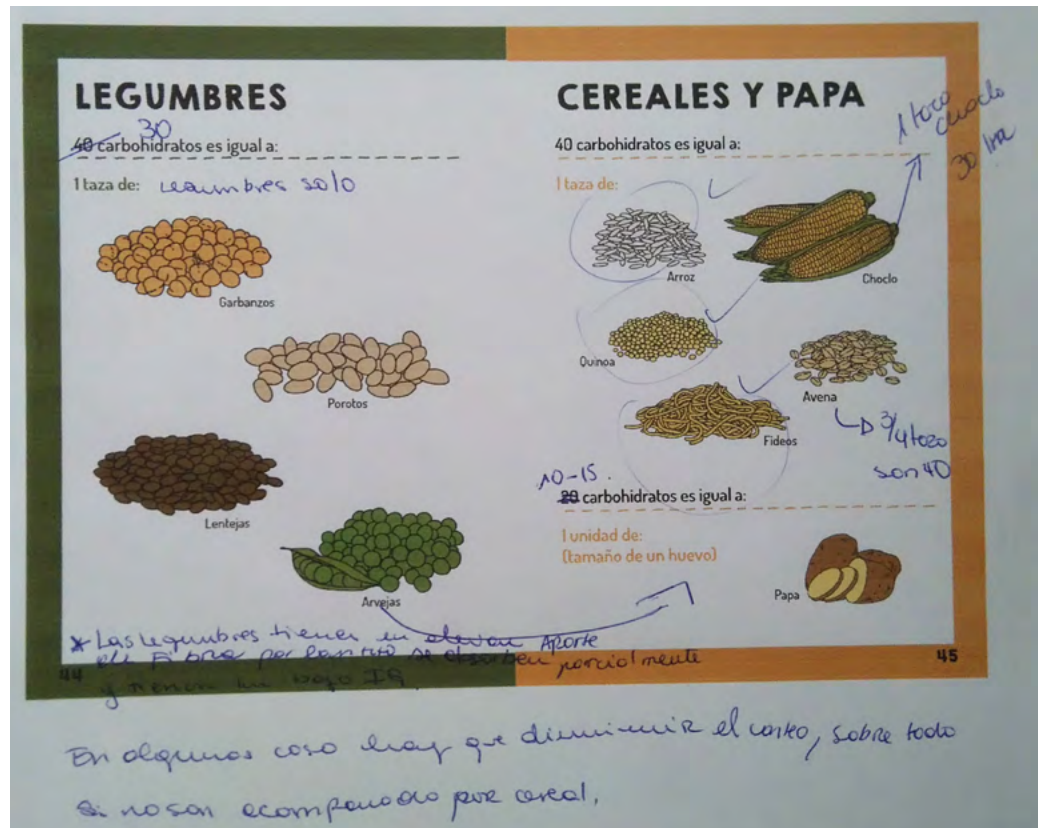 LEGUMBRES
40 30 carbohidratos es igual a:
1 taza de: Legumbres solo
Garbanzos
Porotos
Lentejas
Arvejas
* Las legumbres tienen un elevan Aporte
de Fibra por lo tanto se absorben parcialmente
y tienen un bajo IG.
44
CEREALES Y PAPA
40 carbohidratos es igual a:
1 taza choclo
30
1 taza de:
Arroz
Choclo
Quinoa
Avena
3/4 taza
son 40
Fideos
10-15.
20 carbohidratos es igual a:
1 unidad de:
(tamaño de un huevo)
Papa
45
En algunos caso hay que disminuir el conteo, sobre todo
si no son acompañado por cereal.